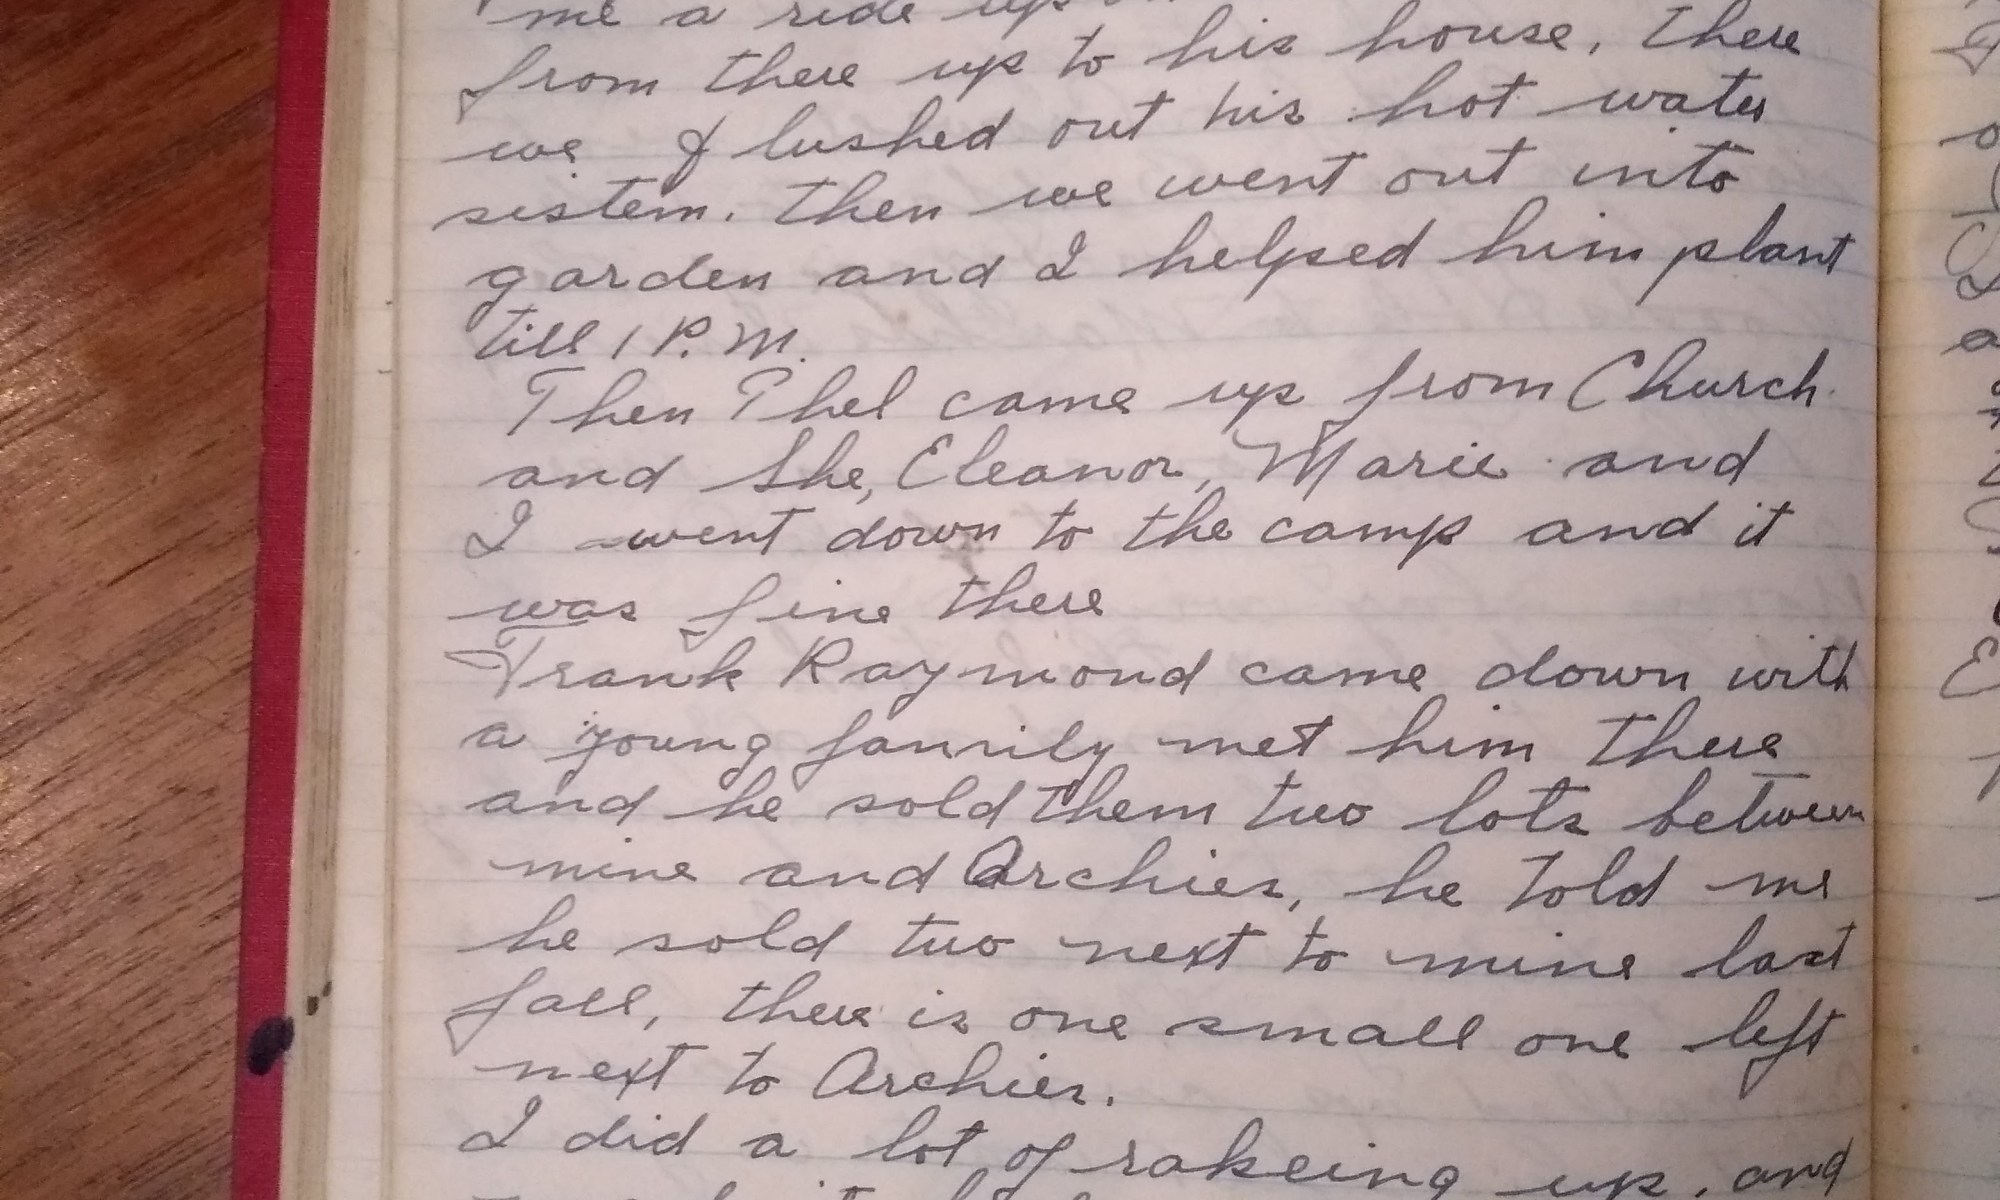 me a ride up
from there up to his house, there
we flushed out his hot water
sistem. then we went out into
garden and I helped him plant
till 1 P.M.
Then Thel came up from Church
and She, Eleanor, Marie and
I went down to the camp and it
was fine there
Frank Raymond came down with
a young family met him there
and he sold them two lots between
mine and Archies, he told me
he sold two next to mine last
fall, there is one small one left
next to Archies.
I did a lot of rakeing up, and